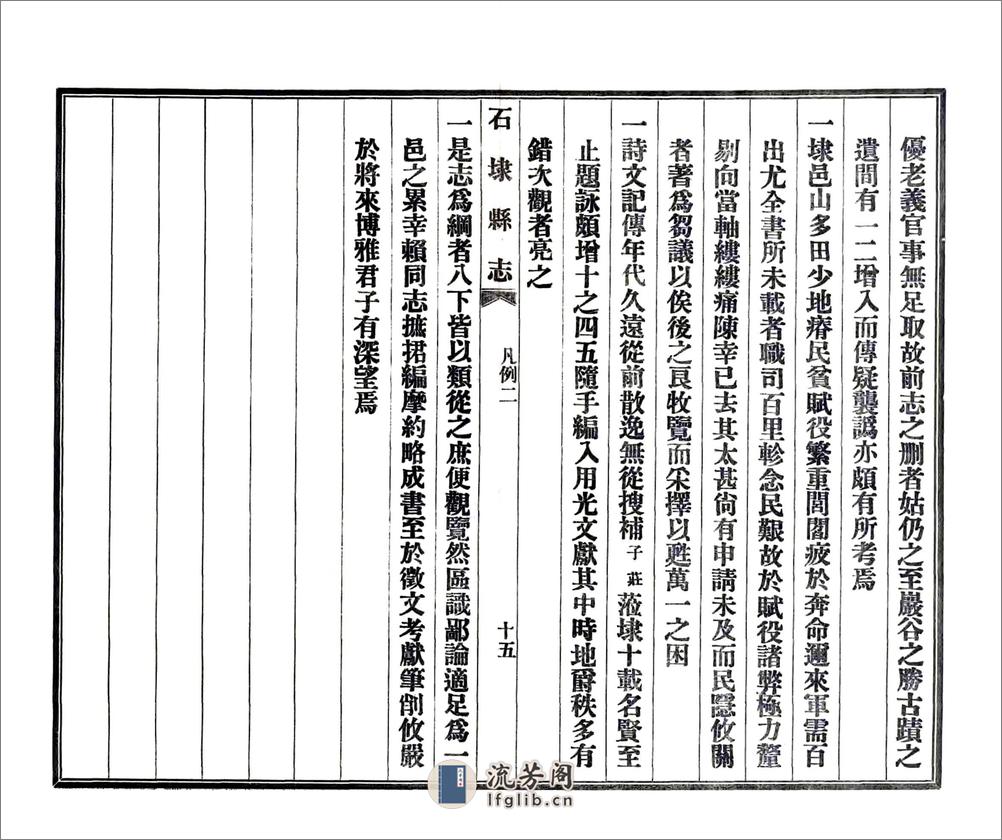 優老義官事無足取故前志之刪者姑仍之至巖谷之勝古蹟之
遺間有一二增入而傳疑襲譌亦頗有所考焉
一埭邑山多田少地瘠民貧賦役繁重閭閻疲於奔命邇來軍需百
出尤全書所未載者職司百里軫念民艱故於賦役諸弊極力釐
剔向當軸縷縷痛陳幸已去其太甚尙有申請未及而民隱攸關
者著爲芻議以俟後之良牧覽而采擇以甦萬一之困
一詩文記傳年代久遠從前散逸無從搜補子莊蒞埭十載名賢至
止題詠頗增十之四五隨手編入用光文獻其中時地爵秩多有
錯次觀者亮之
石埭縣志 凡例二 十五
一是志爲綱者八下皆以類從之庶便觀覽然區識鄙論適足爲一
邑之累幸賴同志摭捃編摩約略成書至於徵文考獻筆削攸嚴
於將來博雅君子有深望焉
流芳阁
lfglib.cn